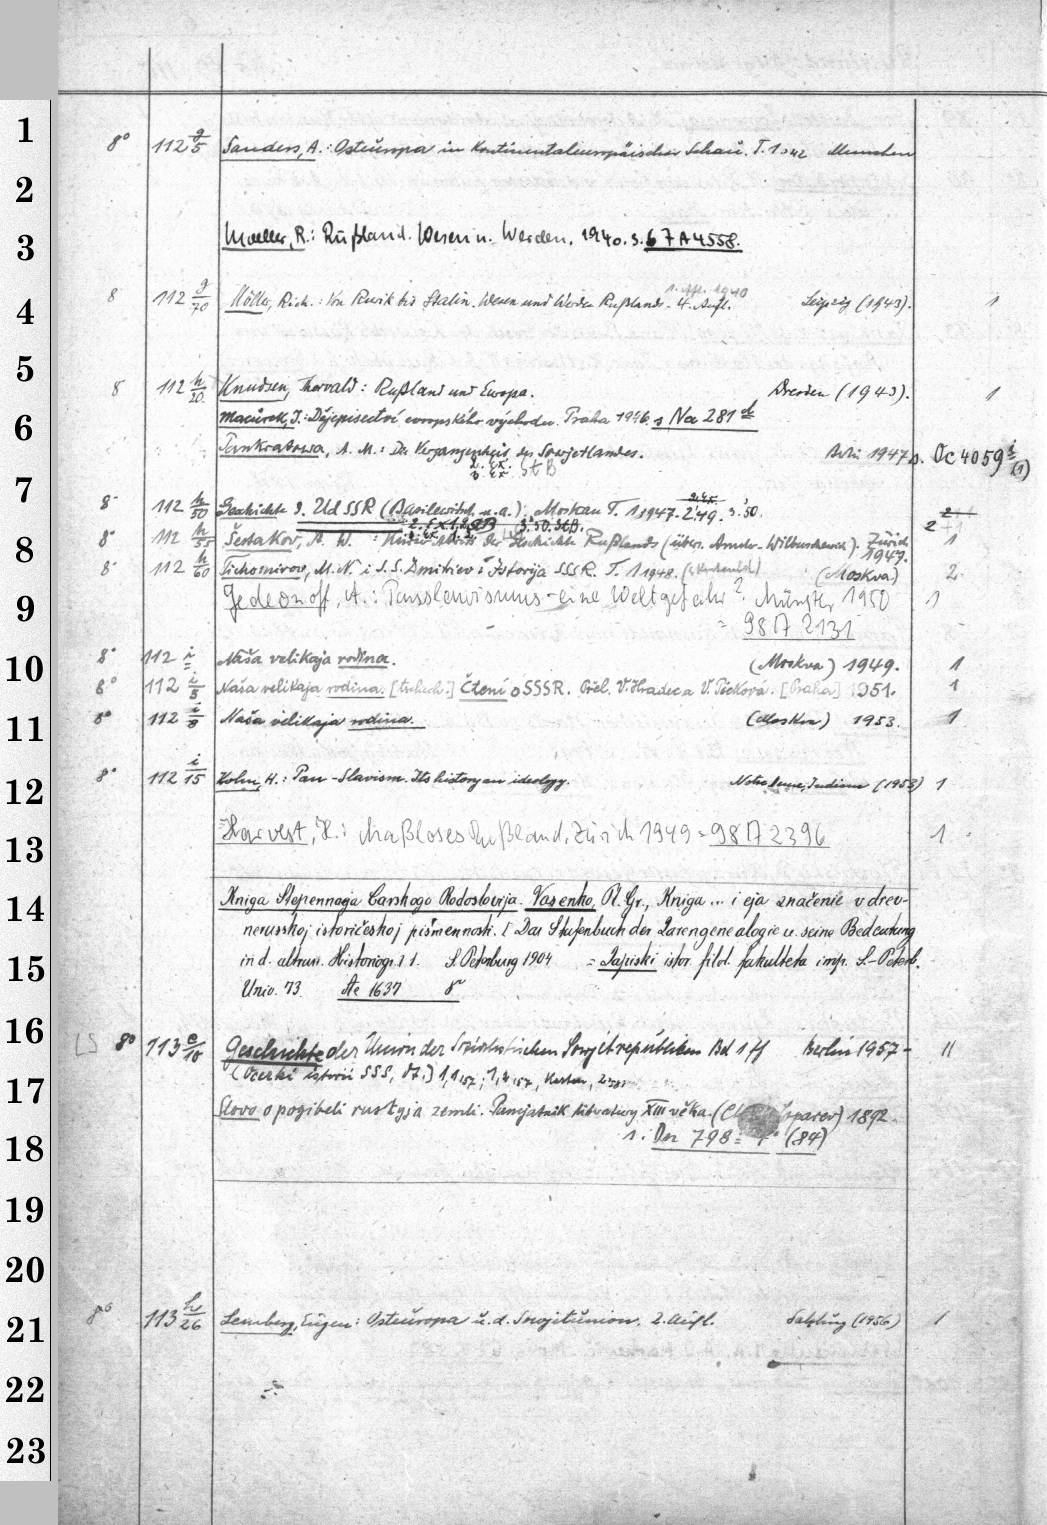 1
8° 112 g/5 Sanders, A.: Osteuropa in kontinentaleuropäischer Schau. T. 1 1942 München
2
3 Moeller, R.: Rußland. Wesen u. Werden. 1940. s. 67 A 4558.
1. Afl. 1940
4 8 112 g/70 Möller, Rich.: Von Rurik bis Stalin. Wesen und Werden Rußlands. 4. Aufl. Leipzig (1943). 1
5
8 112 h/20 Knudsen, Thorvald: Rußland und Europa. Dresden (1943). 1
6 Macůrek, J.: Dějepisectví evropského východu. Praha 1946. s Na 281
Pankratowa, A. M.: Die Vergangenheit des Sowjetlandes. Berlin 1947 s. Oc 4059 i (1)
2. Ex. St B
3. Ex.
7
8° 112 h/50 Geschichte d. UdSSR (Basilewitsch u. a.). Moskau T. 1 1947. 2.'49. 3.'50. 2
8 8° 112 h/55 Šestakov, A. W. der Geschichte Rußlands (übers. Zürich 1947. 1
8° 112 h/60 Tichomirov, M. N. i S. S. Dmitriev: Istorija SSSR. T. 1 1948. (Moskva) 2
9 Gedeonoff, A.: Pansslawismus - eine Weltgefahr? Münster 1950 1
= 98 A 2131
10 8° 112 i Naša velikaja rodina. (Moskva) 1949. 1
8° 112 i/5 Naša velikaja rodina. [tschech.:] Čtení o SSSR. Přel. V. Hradec a V. [Praha] 1951. 1
11 8° 112 i/8 Naša velikaja rodina. (Moskva) 1953. 1
12 8° 112 i/15 Kohn, H.: Pan-Slavism. Its history an ideology. Notre Dame, Indiana (1953) 1
13 Harvest, H.: Maßloses Rußland. Zürich 1949 = 98 A 2396 1
14 Kniga Stepennaja Carskogo Rodoslovija. Vasenko, Pl. Gr., Kniga ... i eja značenie v drev-
nerusskoj istoričeskoj piśmennosti. [Das Stufenbuch der Zarengenealogie u. seine Bedeutung
15 in d. altruss. Historiogr.] 1. S. Peterburg 1904 = Zapiski istor. filol. fakulteta imp. S.-Peterb.
Univ. 73. Ae 1637 8°
16 LS 8° 113 e/10 Geschichte der Union der Sozialistischen Sowjetrepubliken Bd 1 ff Berlin 1957 - II
17 (Očerki istorii SSS, dt.) 1,1 '57; 1,2 '57, Karten,
Slovo o pogibeli russkyja zemli. Pamjatnik literatury XIII věka. Loparev) 1892.
18 1: Dn 798 = 4° (84)
19
20
21 8° 113 h/26 Lemberg, Eugen: Osteuropa u. d. Sowjetunion. 2. Aufl. Salzburg (1956) 1
22
23